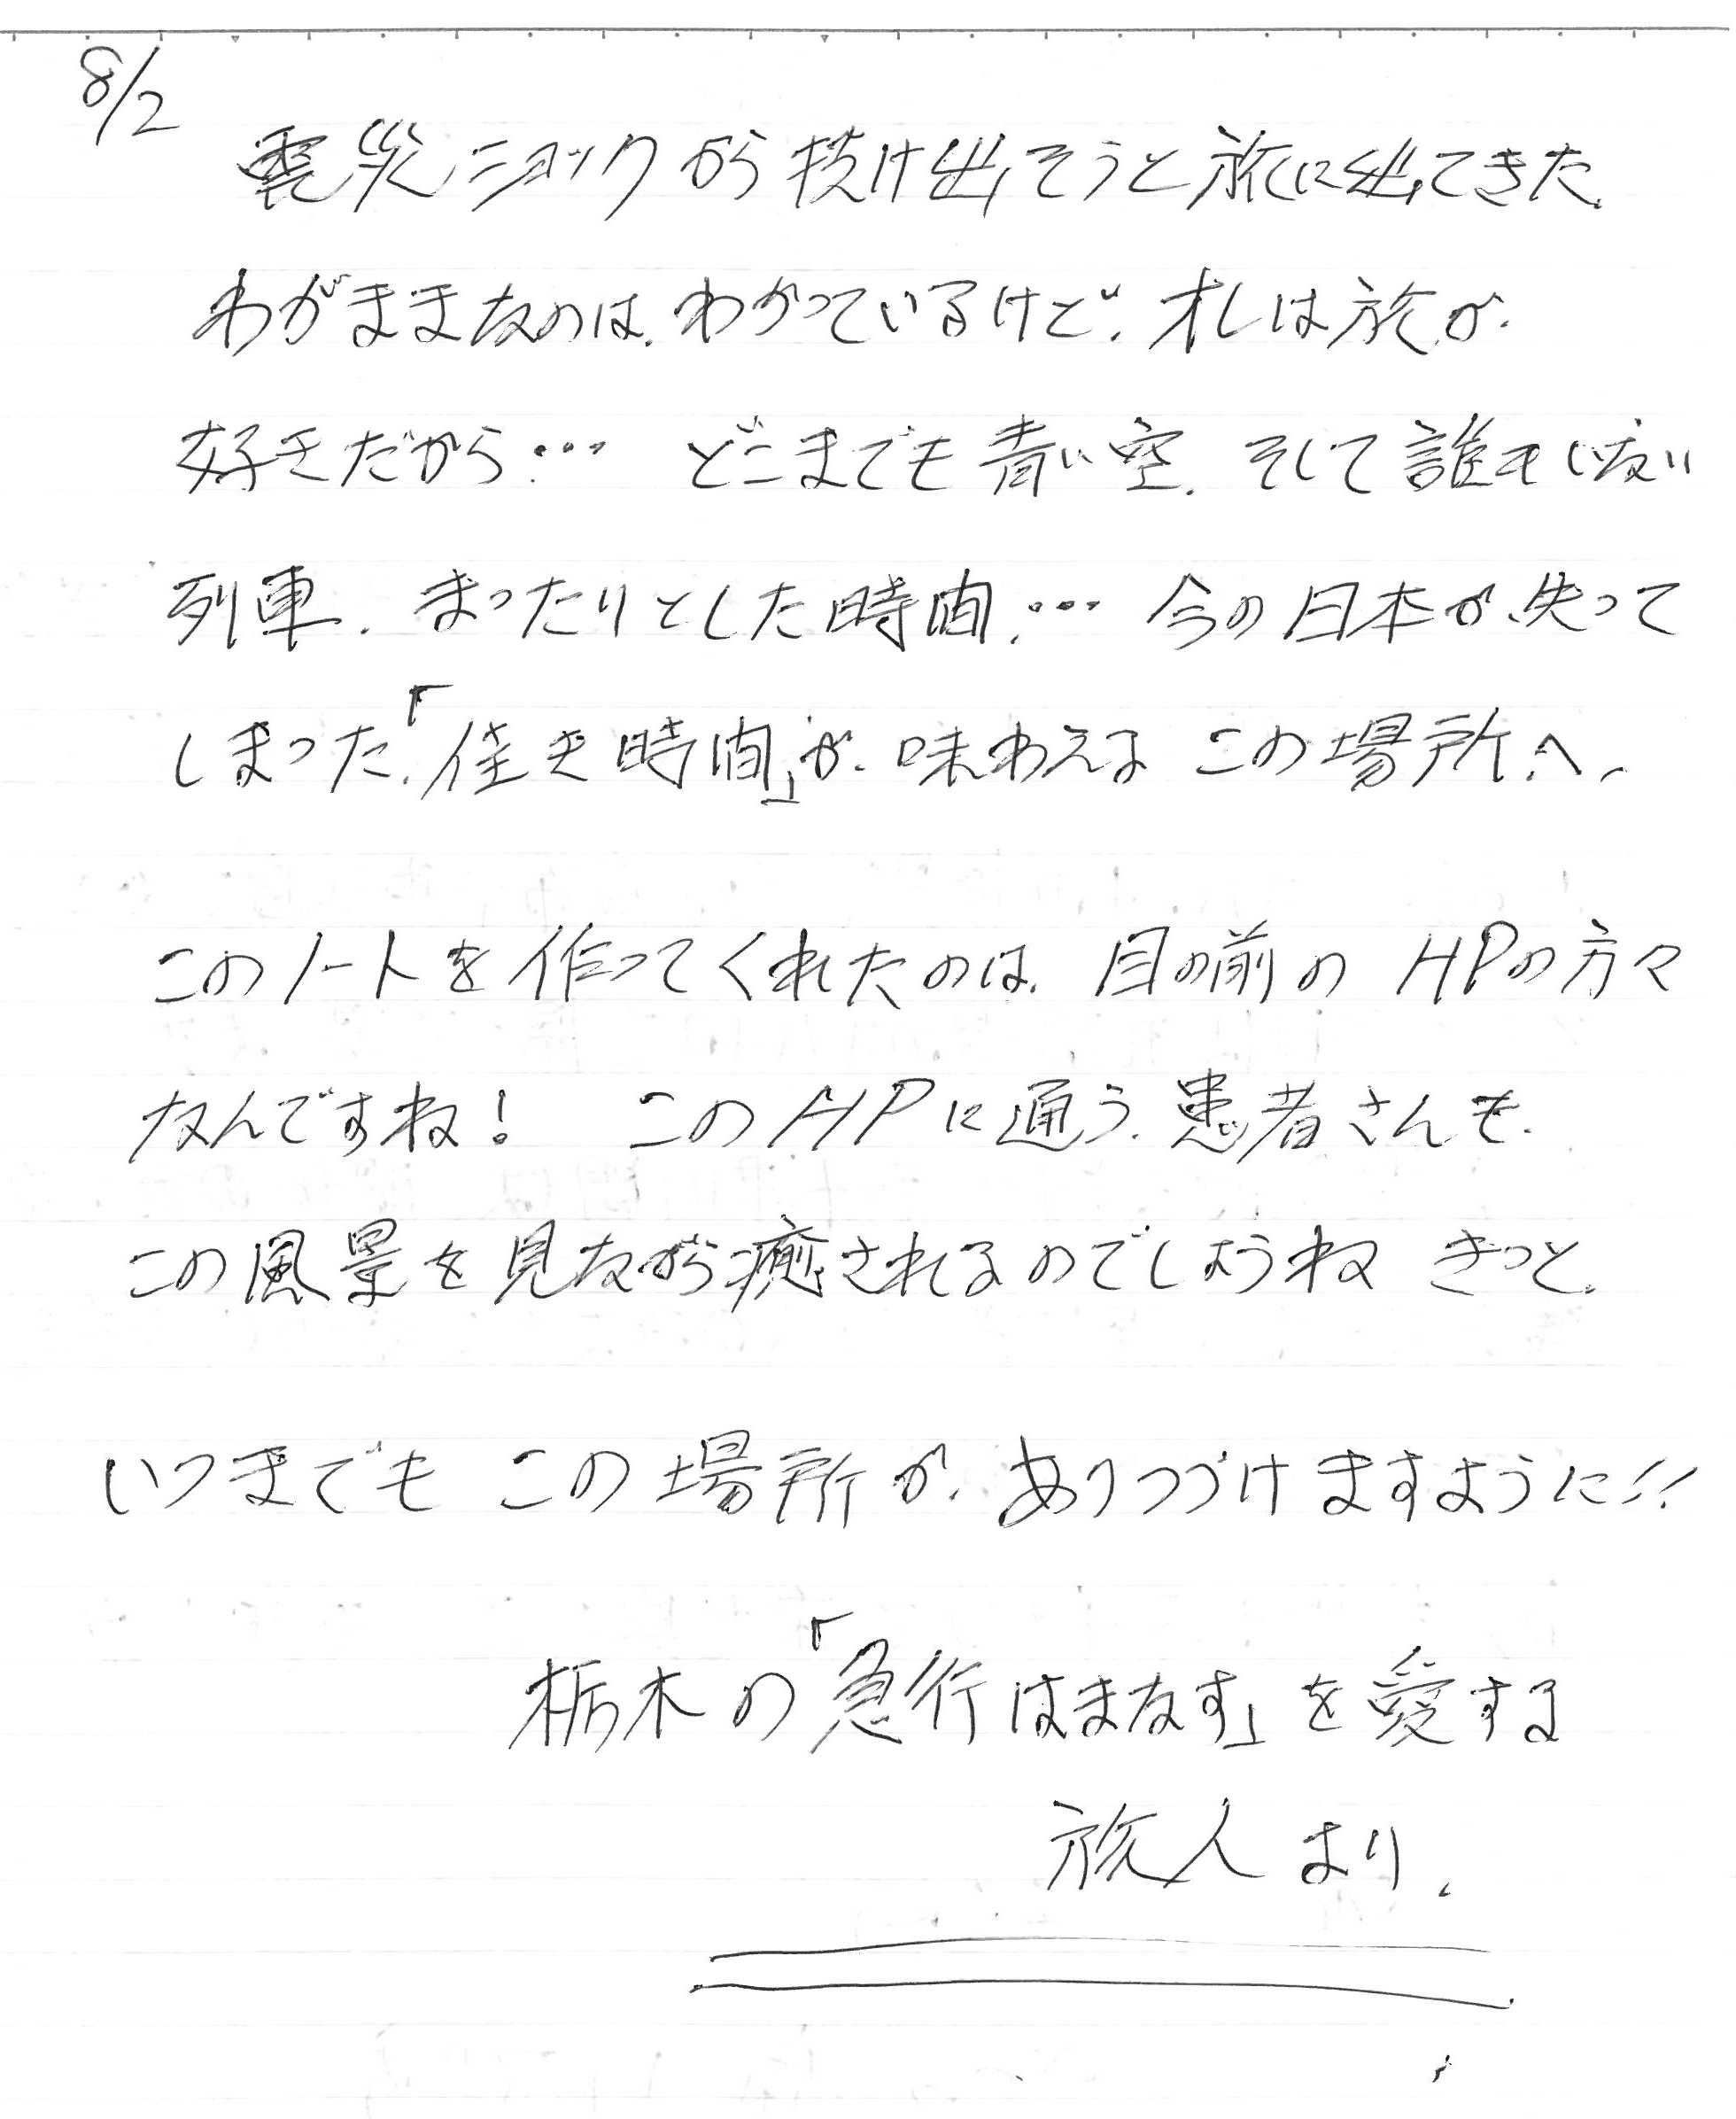 8/2
震災ショックから抜け出そうと旅に出てきた.
わがままなのは、わかっているけど、オレは旅が、
好きだから… どこまでも青い空、そして誰もいない
列車、まったりとした時間、… 今の日本が失って
しまった、「佳き時間」が、味わえる この場所へ、
このノートを作ってくれたのは、目の前の HPの方々
なんですね! このHPに通う、患者さんも、
この風景を見ながら癒されるのでしょうね きっと、
いつまでも この場所が、ありつづけますように!!
栃木の「急行はまなす」を愛する
旅人より、